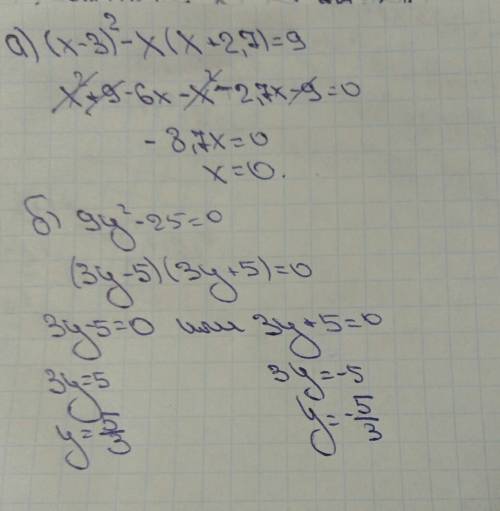 а) (x-3)² - x(x+2,7)=9
x²+9-6x-x²-2,7x-9=0
-8,7x=0
x=0.
б) 9y²-25=0
(3y-5)(3y+5)=0
3y-5=0 или 3y+5=0
3y=5 3y=-5
y=5/3 y=-5/3